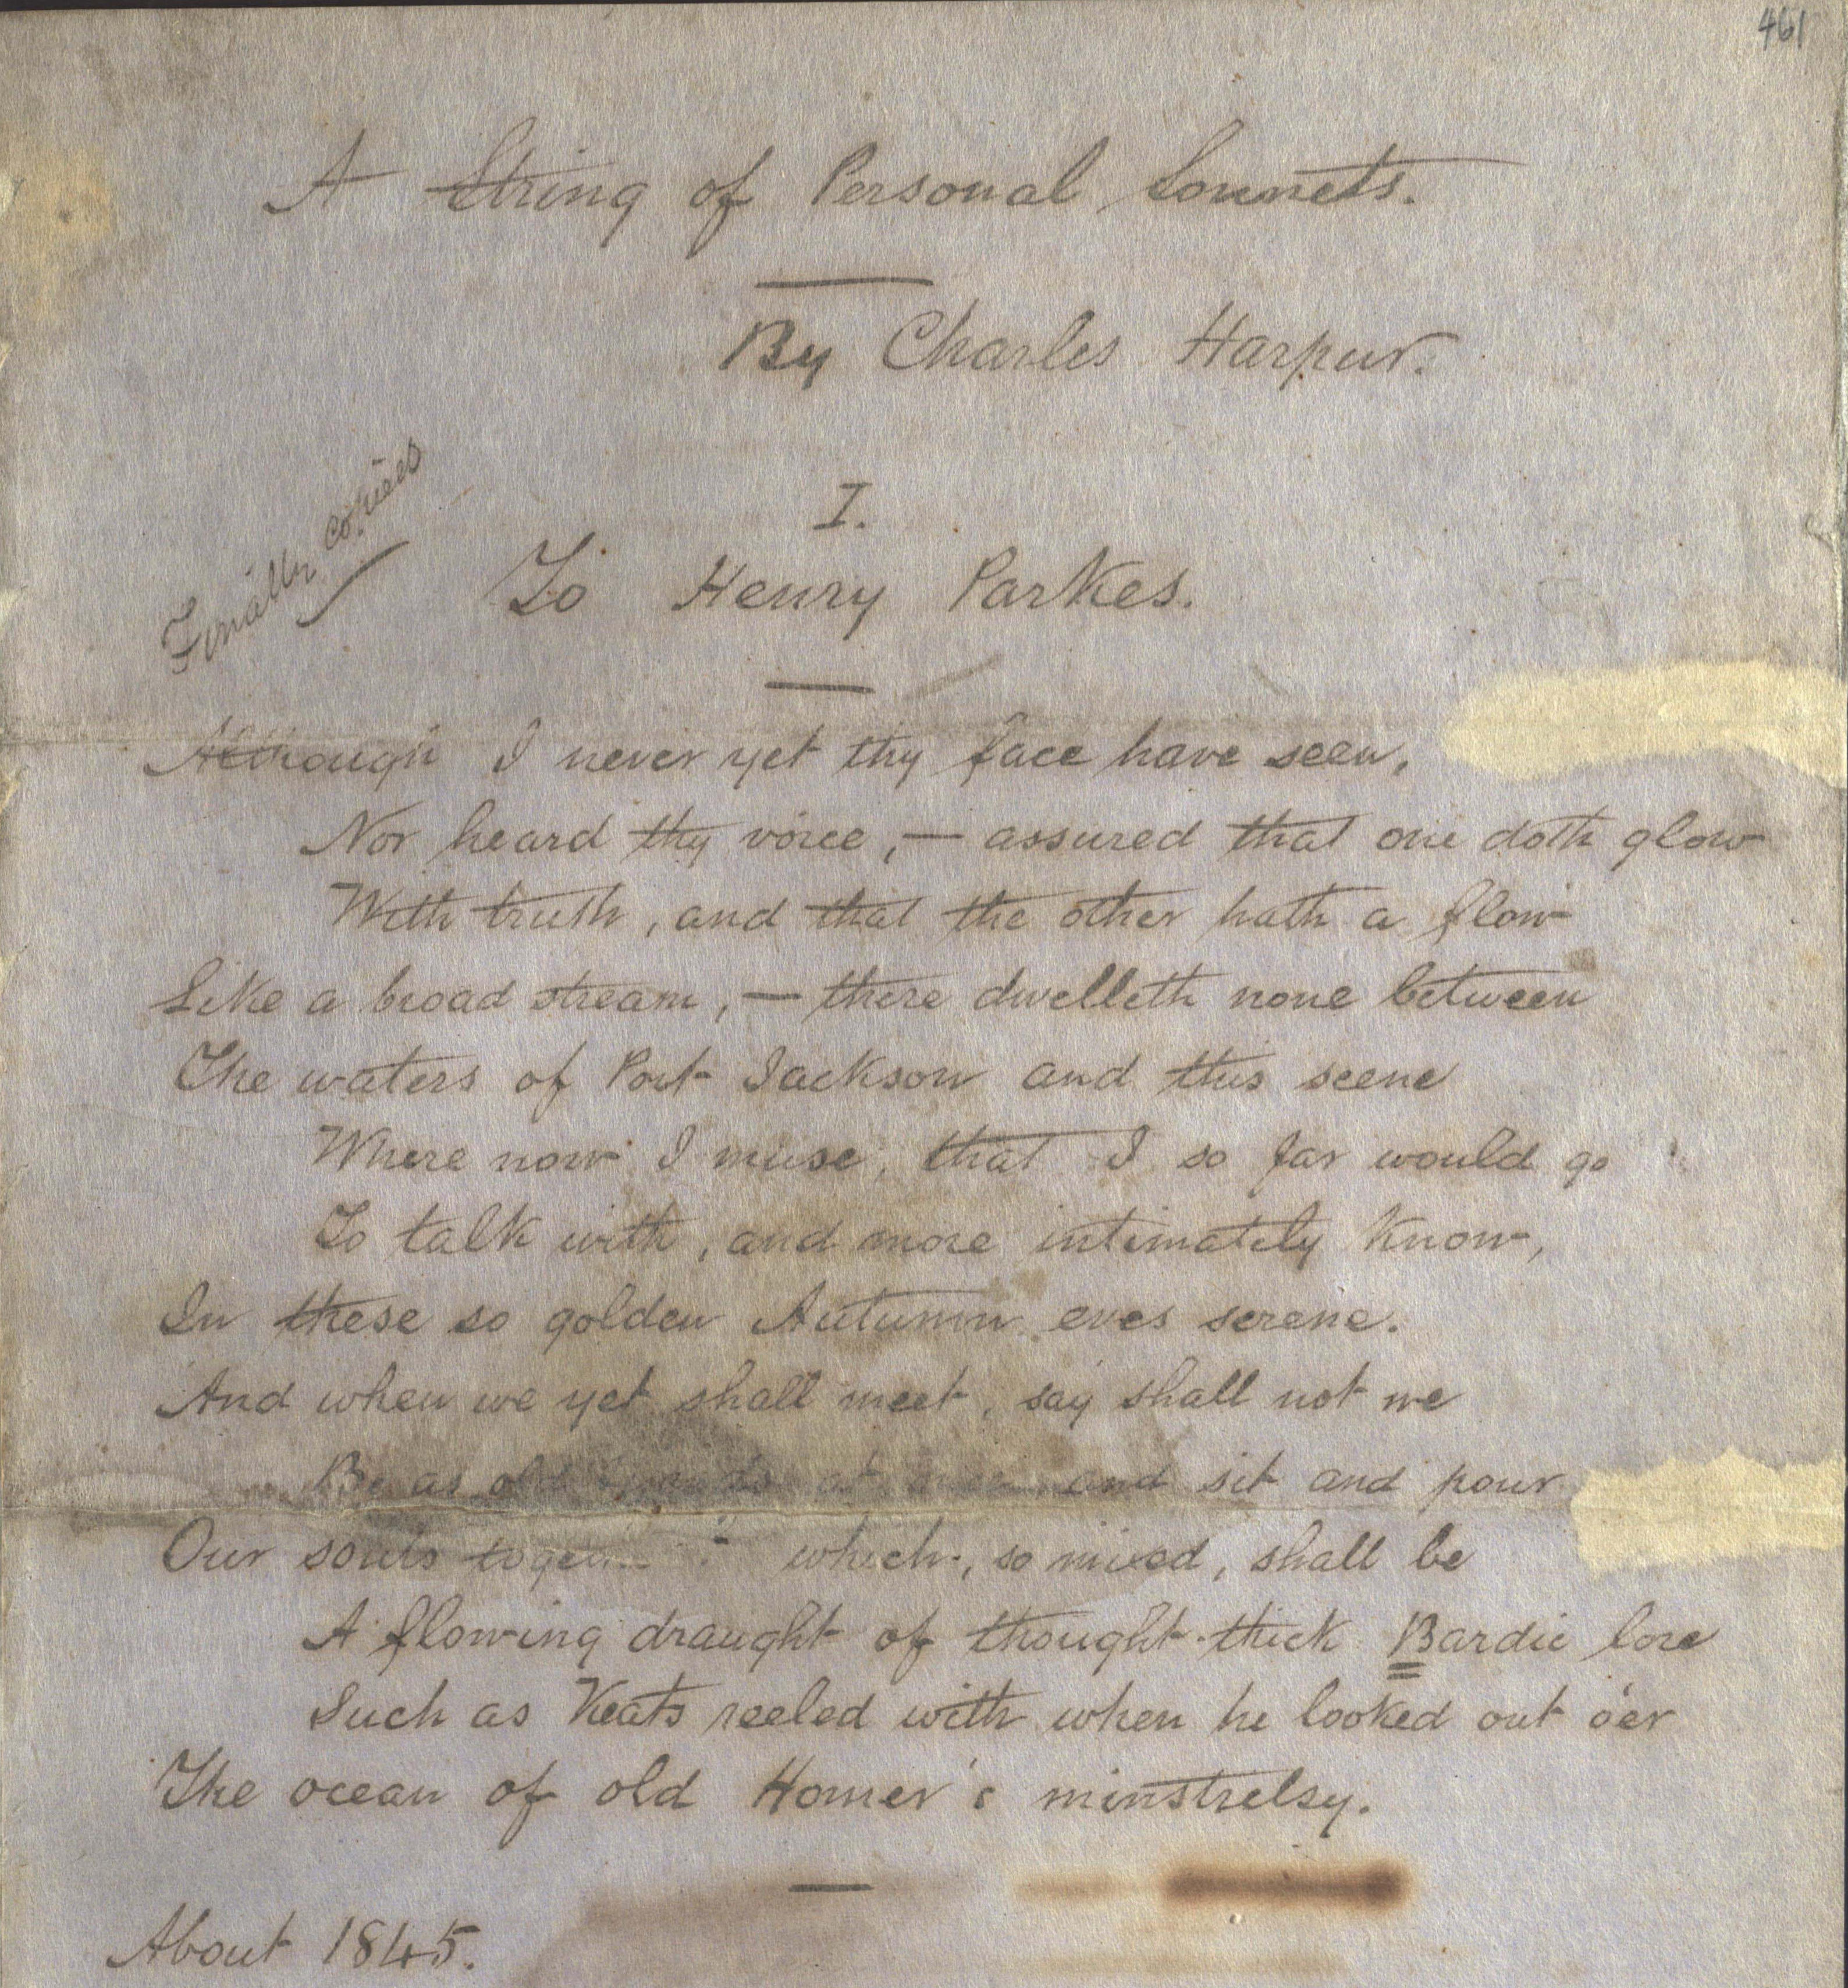 461
A String of Personal Sonnets.
By Charles Harpur.
Finally copied
I.
To Henry Parkes.
Although I never yet thy face have seen,
Nor heard thy voice,— assured that one doth glow
With truth, and that the other hath a flow
Like a broad stream,— there dwelleth none between
The waters of Port Jackson and this scene
Where now I muse, that I so far would go
To talk with, and more intimately know,
In these so golden Autumn eves serene.
And when we yet shall meet, say shall not we
Be as old at and sit and pour
Our souls which, so mixed, shall be
A flowing draught of thought-thick Bardic lore
Such as Keats reeled with when he looked out o'er
The ocean of old Homer's minstrelsy.
About 1845.